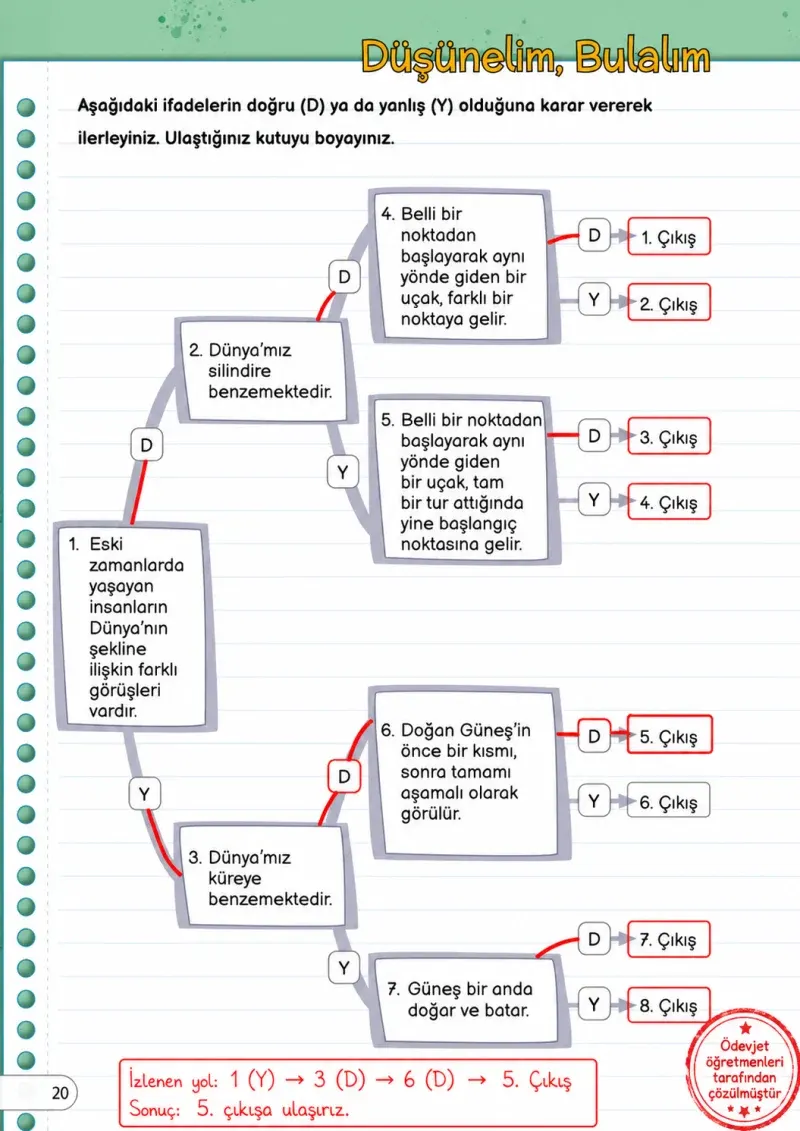 Düşünelim, Bulalım
Aşağıdaki ifadelerin doğru (D) ya da yanlış (Y) olduğuna karar vererek
ilerleyiniz. Ulaştığınız kutuyu boyayınız.
4. Belli bir
noktadan
başlayarak aynı
yönde giden bir
uçak, farklı bir
noktaya gelir.
D
1. Çıkış
Y
2. Çıkış
D
2. Dünya'mız
silindire
benzemektedir.
5. Belli bir noktadan
başlayarak aynı
yönde giden
bir uçak, tam
bir tur attığında
yine başlangıç
noktasına gelir.
D
3. Çıkış
Y
4. Çıkış
D
Y
1. Eski
zamanlarda
yaşayan
insanların
Dünya'nın
şekline
ilişkin farklı
görüşleri
vardır.
6. Doğan Güneş'in
önce bir kısmı,
sonra tamamı
aşamalı olarak
görülür.
D
5. Çıkış
Y
6. Çıkış
D
Y
3. Dünya'mız
küreye
benzemektedir.
D
7. Çıkış
Y
7. Güneş bir anda
doğar ve batar.
Y
8. Çıkış
Ödevjet
öğretmenleri
tarafından
çözülmüştür
İzlenen yol: 1 (Y) → 3 (D) → 6 (D) → 5. Çıkış
Sonuç: 5. çıkışa ulaşırız.
20